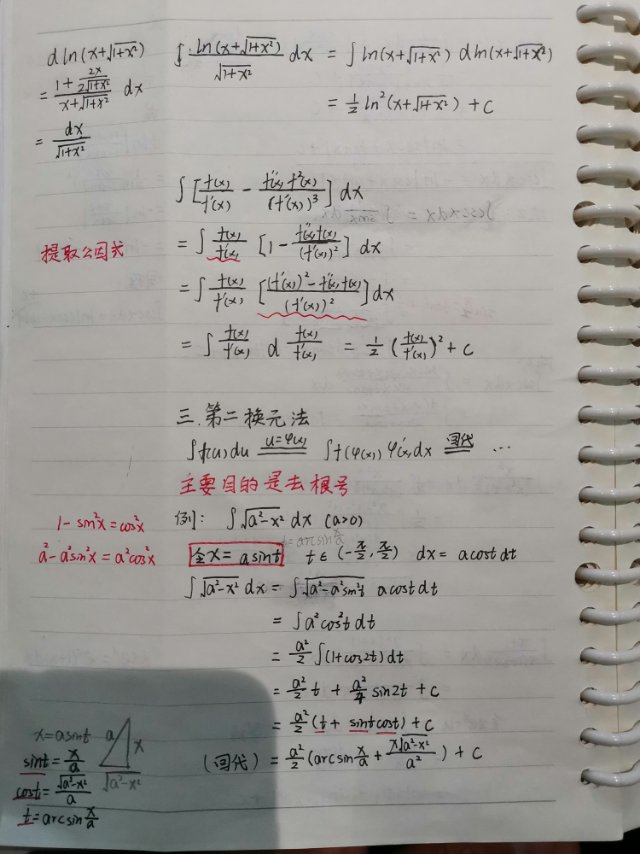 d ln(x+√(1+x²))
= (1 + 2x/(2√(1+x²)))/(x+√(1+x²)) dx
= dx/√(1+x²)
∫ ln(x+√(1+x²))/√(1+x²) dx = ∫ ln(x+√(1+x²)) d ln(x+√(1+x²))
= ½ ln²(x+√(1+x²)) + C
∫ [f(x)/f'(x) − f''(x) f²(x)/(f'(x))³] dx
提取公因式
= ∫ f(x)/f'(x) [1 − f''(x)f(x)/(f'(x))²] dx
= ∫ f(x)/f'(x) [((f'(x))² − f''(x)f(x))/(f'(x))²] dx
= ∫ f(x)/f'(x) d f(x)/f'(x) = ½ (f(x)/f'(x))² + C
三.第二换元法
∫f(u)du =(u=φ(x))= ∫f(φ(x))φ'(x)dx =(回代)= ...
主要目的是去根号
例: ∫√(a²−x²) dx (a>0)
1−sin²x=cos²x
a²−a²sin²x=a²cos²x
令x=asint t∈(−π/2,π/2) dx=acostdt
∫√(a²−x²) dx = ∫√(a²−a²sin²t) acostdt
= ∫a²cos²t dt
= a²/2 ∫(1+cos2t)dt
= a²/2 t + a²/4 sin2t + C
= a²/2 (t + sintcost) + C
(回代) = a²/2 (arcsin x/a + x√(a²−x²)/a²) + C
x=asint a x
√(a²−x²)
sint = x/a
cost = √(a²−x²)/a
t=arcsin x/a